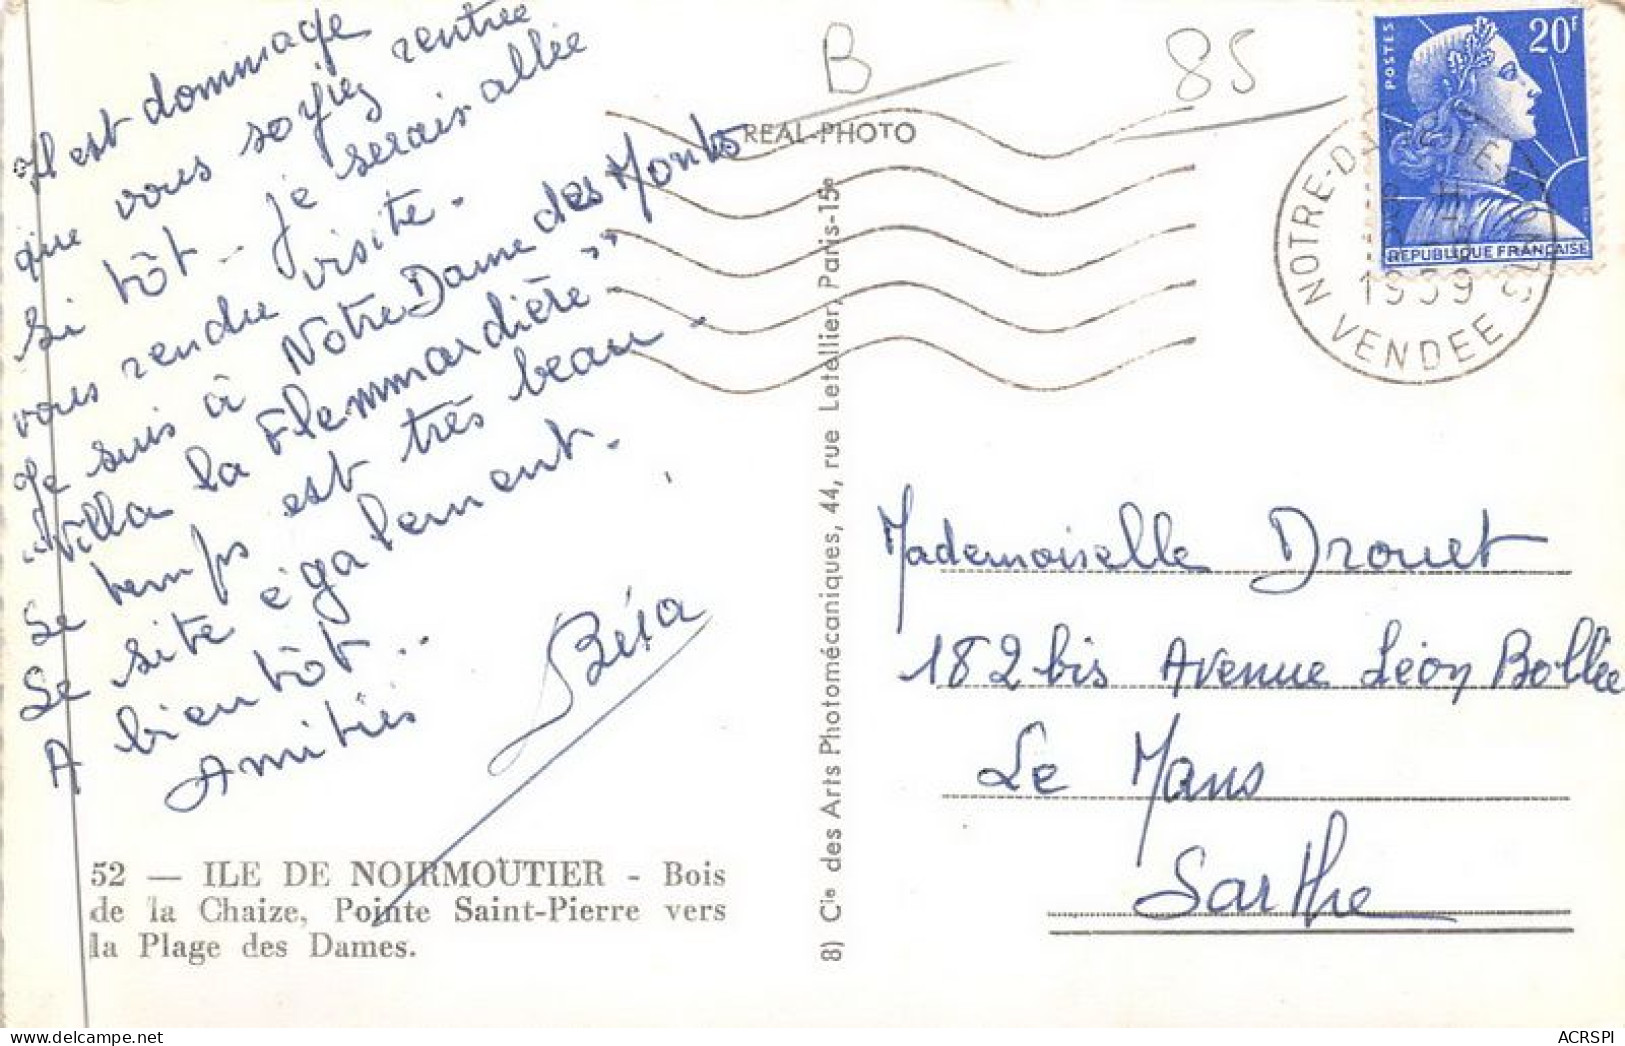 Il est dommage
que vous soyiez rentrée
si tôt - je serais allée
vous rendre visite.
Je suis à Notre Dame des Monts
"Villa la Flemmardière"
Le temps est très beau -
Le site également.
A bientôt..
Amitiés
52 — ILE DE NOIRMOUTIER - Bois
de la Chaize, Pointe Saint-Pierre vers
la Plage des Dames.
B
85
REAL-PHOTO
8) Cie des Arts Photomécaniques, 44, rue Letellier, Paris-15e
POSTES
20F
REPUBLIQUE FRANÇAISE
1959
VENDEE
Mademoiselle Drouet
182 bis Avenue Léon Bollée
Le Mans
Sarthe
ACRSPI